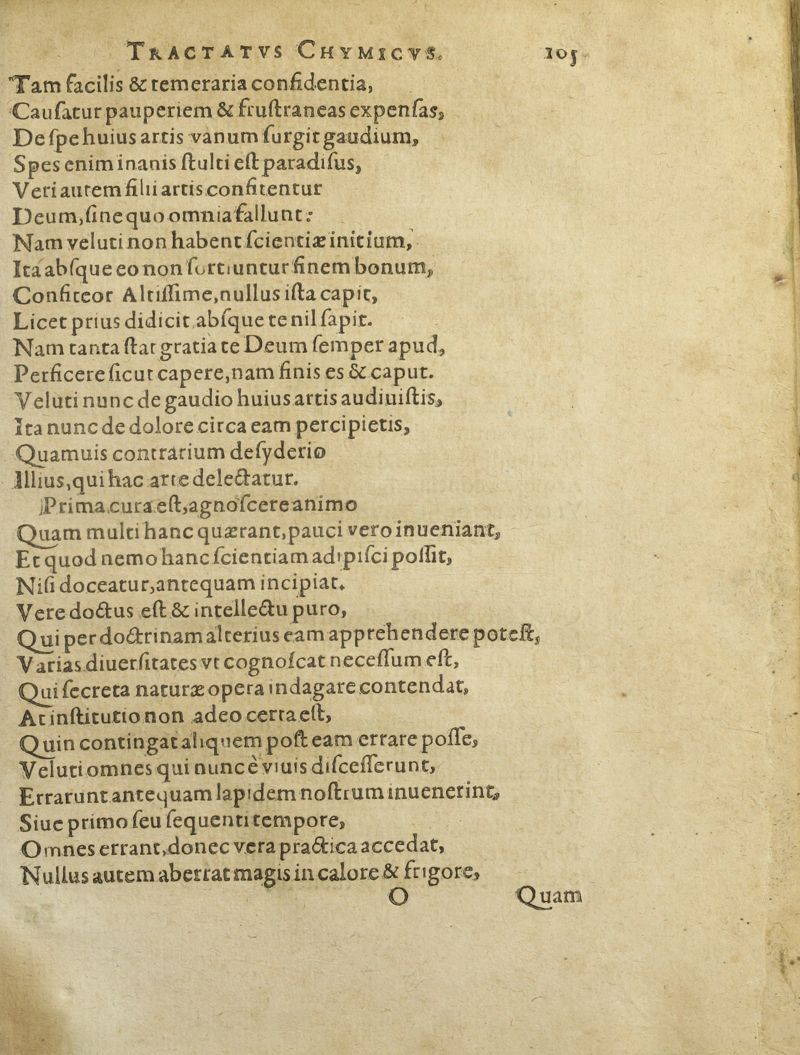 TRACTATVS CHYMICVS. 105
Tam facilis & temeraria confidentia,
Cauſatur pauperiem & fruſtraneas expenſas,
De ſpe huius artis vanum ſurgit gaudium,
Spes enim inanis ſtulti eſt paradiſus,
Veri autem filii artis confitentur
Deum, ſine quo omnia fallunt:
Nam veluti non habent ſcientiæ initium,
Ita abſque eo non ſortiuntur finem bonum,
Confiteor Altiſſime, nullus iſta capit,
Licet prius didicit abſque te nil ſapit.
Nam tanta ſtat gratia te Deum ſemper apud,
Perficere ſicut capere, nam finis es & caput.
Veluti nunc de gaudio huius artis audiuiſtis,
Ita nunc de dolore circa eam percipietis,
Quamuis contrarium deſyderio
Illius, qui hac arte delectatur.
Prima cura eſt, agnoſcere animo
Quam multi hanc quærant, pauci vero inueniant,
Et quod nemo hanc ſcientiam adipiſci poſſit,
Niſi doceatur, antequam incipiat.
Vere doctus eſt & intellectu puro,
Qui per doctrinam alterius eam apprehendere poteſt,
Varias diuerſitates vt cognoſcat neceſſum eſt,
Qui ſecreta naturæ opera indagare contendat,
At inſtitutio non adeo certa eſt,
Quin contingat aliquem poſt eam errare poſſe,
Veluti omnes qui nunc è viuis diſceſſerunt,
Errarunt antequam lapidem noſtrum inuenerint,
Siue primo ſeu ſequenti tempore,
Omnes errant, donec vera practica accedat,
Nullus autem aberrat magis in calore & frigore,
O Quam